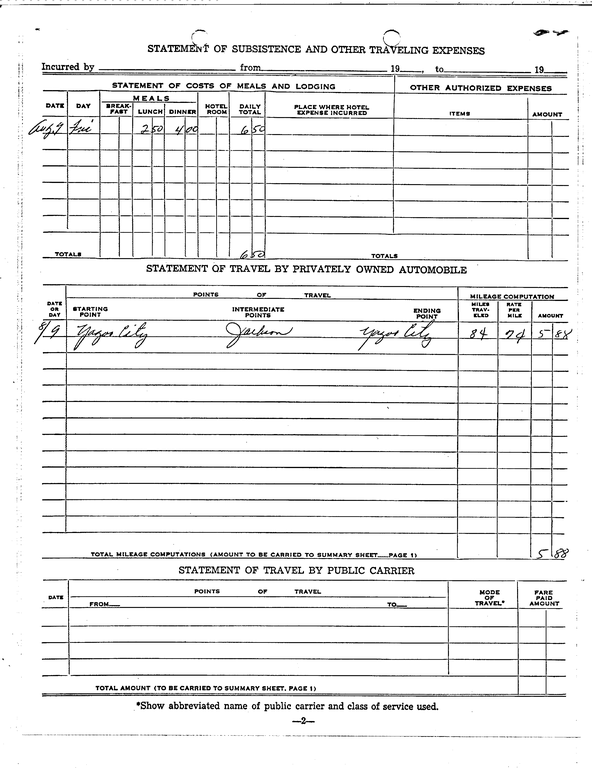 STATEMENT OF SUBSISTENCE AND OTHER TRAVELING EXPENSES
Incurred by from 19 , to 19
STATEMENT OF COSTS OF MEALS AND LODGING OTHER AUTHORIZED EXPENSES
DATE DAY MEALS BREAK-FAST LUNCH DINNER HOTEL ROOM DAILY TOTAL PLACE WHERE HOTEL EXPENSE INCURRED ITEMS AMOUNT
Aug 9 Fri 2 50 4 00 6 50
TOTALS 6 50 TOTALS
STATEMENT OF TRAVEL BY PRIVATELY OWNED AUTOMOBILE
POINTS OF TRAVEL MILEAGE COMPUTATION
DATE OR DAY STARTING POINT INTERMEDIATE POINTS ENDING POINT MILES TRAV-ELED RATE PER MILE AMOUNT
8/9 Yazoo City Jackson Yazoo City 84 7¢ 5 88
TOTAL MILEAGE COMPUTATIONS (AMOUNT TO BE CARRIED TO SUMMARY SHEET—PAGE 1) 5 88
STATEMENT OF TRAVEL BY PUBLIC CARRIER
DATE POINTS OF TRAVEL MODE OF TRAVEL* FARE PAID AMOUNT
FROM— TO—
TOTAL AMOUNT (TO BE CARRIED TO SUMMARY SHEET, PAGE 1)
*Show abbreviated name of public carrier and class of service used.
—2—